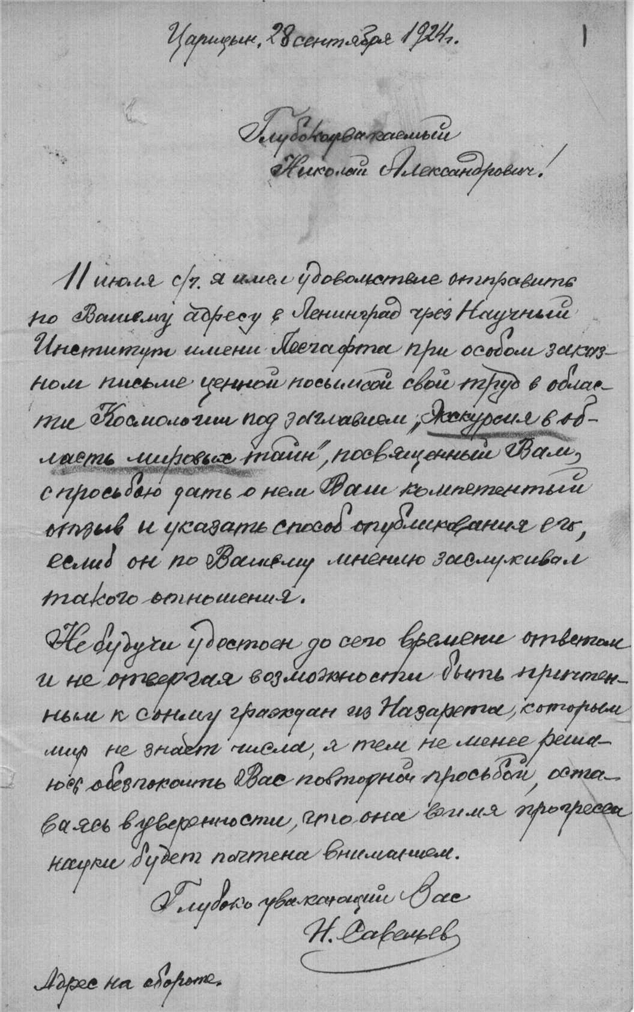 Царицын, 28 сентября 1924г.
1
Глубокоуважаемый
Николай Александрович!
11 июля с/г. я имел удовольствие отправить
по Вашему адресу в Ленинград чрез Научный
Институт имени Лесгафта при особом заказ-
ном письме ценной посылкой свой труд в облас-
ти Космологии под заглавием „Экскурсия в об-
ласть мировых тайн", посвященный Вам,
с просьбою дать о нем Ваш компетентый
отзыв и указать способ опубликования его,
еслиб он по Вашему мнению заслуживал
такого отношения.
Не будучи удостоен до сего времени ответом
и не отвергая возможности быть причтен-
ным к сонму граждан из Назарета, которым
мир не знает числа, я тем не менее реша-
юсь обезпокоить Вас повторной просьбой, оста-
ваясь в уверенности, что она во имя прогресса
науки будет почтена вниманием.
Глубоко уважающий Вас
Н. Савельев
Адрес на обороте.